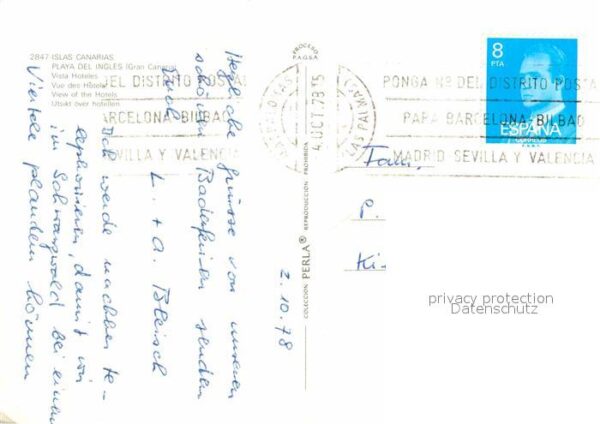 2847 ISLAS CANARIAS
PLAYA DEL INGLES (Gran Canaria)
Vista Hoteles
Vue des Hotels
View of the Hotels
Utsikt över hotellen
Herzliche Grüsse von unseren
schönen Badeferien senden
Euch L. + A.
Ich werde nachher te-
lephonieren, damit wir
im Schwarzwald bei einem
Viertele plaudern können
2.10.78
COLECCION PERLA® REPRODUCCION PROHIBIDA
PROCESO
PAOSA
DEL DISTRITO POSTAL
BARCELONA-BILBAO
SEVILLA Y VALENCIA
4.OCT.78
LAS PALMAS
PONGA Nº DEL DISTRITO POSTAL
PARA BARCELONA-BILBAO
MADRID SEVILLA Y VALENCIA
8
PTA
ESPAÑA
CORREOS
Fam.
P.
Ki-
privacy protection
Datenschutz